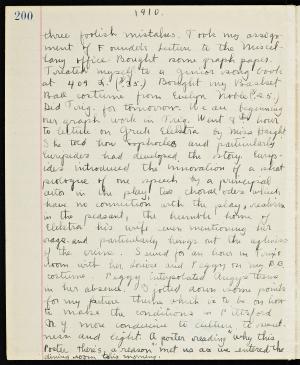 200
1910.
three foolish mistakes. Took my assign-
ment of Founders Lecture to the Miscel-
lany office. Bought some graph paper.
Treated myself to a Junior song book
at 409 (.35). Bought my Basket
Ball costume from
Did Trig. for tomorrow. We are beginning
our graph work in Trig. Went 8th hour
to lecture on Greek Electra by Miss Haight
She told how Sophocles and particularly
Euripides had developed the story. Eurip-
ides introduced the innovation of a short
prologue of one speech by a principal
actor in the play, also choral odes which
have no connection with the play, realism
in the peasant, the humble home of
Electra his wife even mentioning her
rags and particularly brings out the ugliness
of the crime. Sewed for an hour in
room with her, Louise and Peggy on my B.B.
costume. Peggy interpolated
in her absence. I jotted down some points
for my future theme which is to be on how
to make the conditions in
N.Y. more conducive to culture to sweet-
ness and light. A poster reading "Why this
Poster, there's a reason" met us as we entered the
dining room this morning.